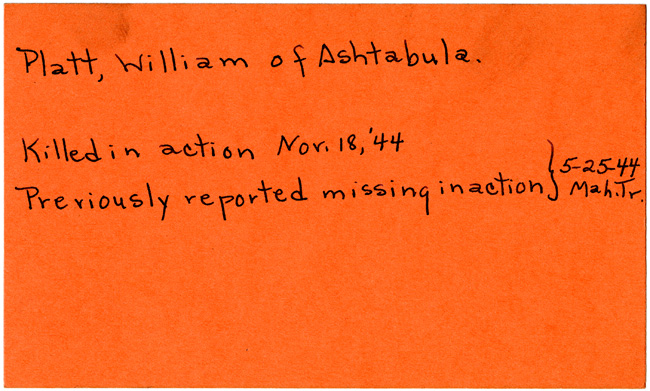 Platt, William of Ashtabula.
Killed in action Nov. 18, '44
Previously reported missing in action } 5-25-44
Mah. Tr.